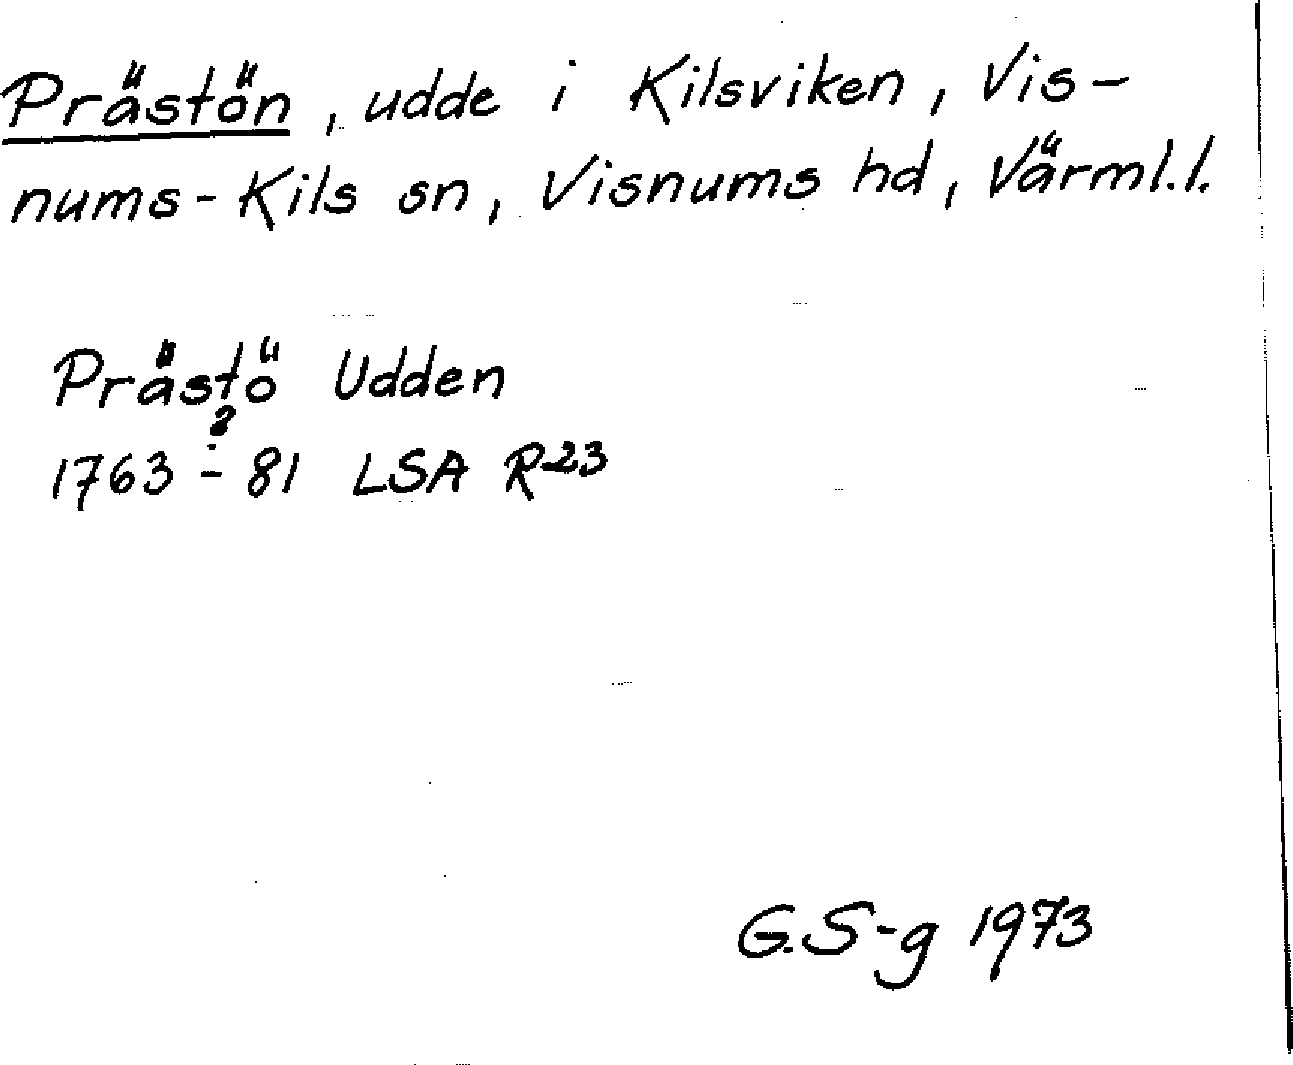 Prästön, udde i Kilsviken, Vis-
nums-Kils sn, Visnums hd, Värml.l.
Prästö Udden
1763 ?- 81 LSA R23
G.S-g 1973